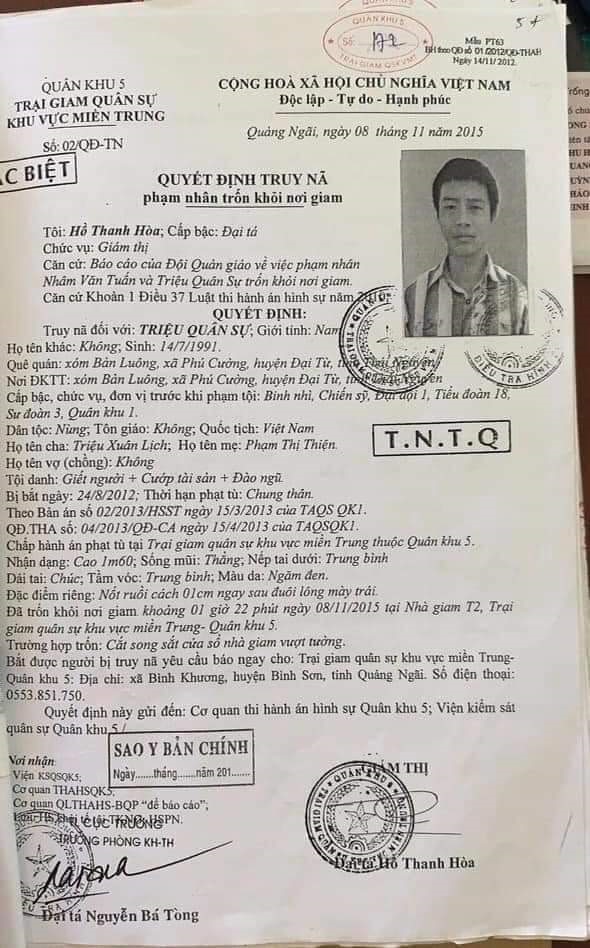 QUÂN KHU 5
Số: 172
TRẠI GIAM QSKVMT
5+
Mẫu PT63
BH theo QĐ số 01/2012/QĐ-THAH
Ngày 14/11/2012.
QUÂN KHU 5
TRẠI GIAM QUÂN SỰ
KHU VỰC MIỀN TRUNG
Số: 02/QĐ-TN
CỘNG HOÀ XÃ HỘI CHỦ NGHĨA VIỆT NAM
Độc lập - Tự do - Hạnh phúc
Quảng Ngãi, ngày 08 tháng 11 năm 2015
ẶC BIỆT
QUYẾT ĐỊNH TRUY NÃ
phạm nhân trốn khỏi nơi giam
Tôi: Hồ Thanh Hòa; Cấp bậc: Đại tá
Chức vụ: Giám thị
Căn cứ: Báo cáo của Đội Quản giáo về việc phạm nhân
Nhâm Văn Tuấn và Triệu Quân Sự trốn khỏi nơi giam.
Căn cứ Khoản 1 Điều 37 Luật thi hành án hình sự năm
QUYẾT ĐỊNH:
Truy nã đối với: TRIỆU QUÂN SỰ; Giới tính: Nam
Họ tên khác: Không; Sinh: 14/7/1991.
Quê quán: xóm Bàn Luông, xã Phú Cường, huyện Đại Từ, tỉnh Thái Nguyên
Nơi ĐKTT: xóm Bàn Luông, xã Phú Cường, huyện Đại Từ, tỉnh Thái Nguyên
Cấp bậc, chức vụ, đơn vị trước khi phạm tội: Binh nhì, Chiến sỹ, Đại đội 1, Tiểu đoàn 18,
Sư đoàn 3, Quân khu 1.
Dân tộc: Nùng; Tôn giáo: Không; Quốc tịch: Việt Nam
Họ tên cha: Triệu Xuân Lịch; Họ tên mẹ: Phạm Thị Thiện.
T.N.T.Q
Họ tên vợ (chồng): Không
Tội danh: Giết người + Cướp tài sản + Đào ngũ.
Bị bắt ngày: 24/8/2012; Thời hạn phạt tù: Chung thân.
Theo Bản án số 02/2013/HSST ngày 15/3/2013 của TAQS QK1.
QĐ.THA số: 04/2013/QĐ-CA ngày 15/4/2013 của TAQSQK1.
Chấp hành án phạt tù tại Trại giam quân sự khu vực miền Trung thuộc Quân khu 5.
Nhận dạng: Cao 1m60; Sống mũi: Thẳng; Nếp tai dưới: Trung bình
Dái tai: Chúc; Tầm vóc: Trung bình; Màu da: Ngăm đen.
Đặc điểm riêng: Nốt ruồi cách 01cm ngay sau đuôi lông mày trái.
Đã trốn khỏi nơi giam khoảng 01 giờ 22 phút ngày 08/11/2015 tại Nhà giam T2, Trại
giam quân sự khu vực miền Trung- Quân khu 5.
Trường hợp trốn: Cắt song sắt cửa sổ nhà giam vượt tường.
Bắt được người bị truy nã yêu cầu báo ngay cho: Trại giam quân sự khu vực miền Trung-
Quân khu 5: Địa chỉ: xã Bình Khương, huyện Bình Sơn, tỉnh Quảng Ngãi. Số điện thoại:
0553.851.750.
Quyết định này gửi đến: Cơ quan thi hành án hình sự Quân khu 5; Viện kiểm sát
quân sự Quân khu 5./
SAO Y BẢN CHÍNH
Ngày.......tháng.......năm 201.......
Nơi nhận:
Viện KSQSQK5;
Cơ quan THAHSQK5;
Cơ quan QLTHAHS-BQP "để báo cáo";
TL CỤC TRƯỞNG
TRƯỞNG PHÒNG KH-TH
Đại tá Nguyễn Bá Tòng
GIÁM THỊ
Đại tá Hồ Thanh Hòa